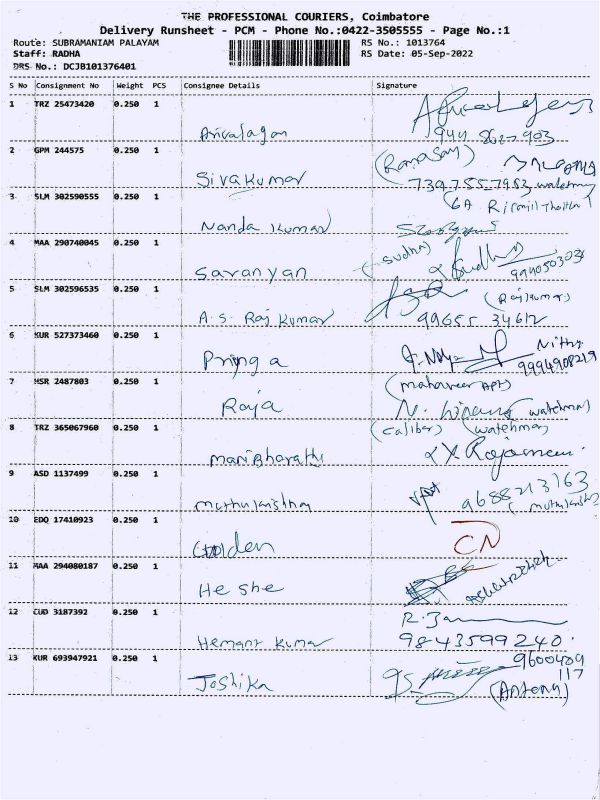 THE PROFESSIONAL COURIERS, Coimbatore
Delivery Runsheet - PCM - Phone No.:0422-3505555 - Page No.:1
Route: SUBRAMANIAM PALAYAM RS No.: 1013764
Staff: RADHA RS Date: 05-Sep-2022
DRS No.: DCJB101376401
S No Consignment No Weight PCS Consignee Details Signature
1 TRZ 25473420 0.250 1
Arivalagan
2 GPM 244575 0.250 1 (Ramasay)
Sivakumar watchman
3 SLM 302590555 0.250 1 6A
Nanda Kumar
4 MAA 290740045 0.250 1 (Sudha) Sudha
Saravanan 994050303
5 SLM 302596535 0.250 1 (Rajkumar)
A.S. Raj Kumar 99655 34612
6 KUR 527373460 0.250 1 Nithy
Priya 9994908219
7 HSR 2487803 0.250 1 (mahaveer Apts)
Raja (watchman)
8 TRZ 365067960 0.250 1 (Caliber) (watchman)
Mari Bharathi
9 ASD 1137499 0.250 1 9688213163
Muthukrishna
10 EDQ 17410923 0.250 1
Golden CN
11 MAA 294080187 0.250 1
He she
12 CUD 3187392 0.250 1
Hemant Kumar 9843599240.
13 KUR 693947921 0.250 1 9600409
117
Joshika (Antony)